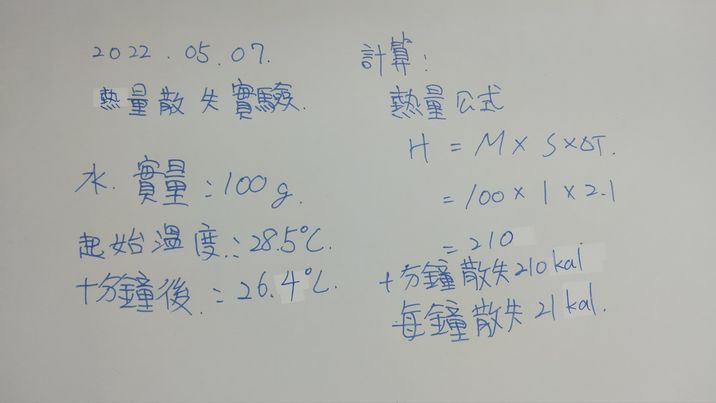 2022.05.07.
熱量散失實驗.
水.實量:100g.
起始溫度:28.5℃.
十分鐘後:26.4℃.
計算:
熱量公式
H = M × S × ΔT.
= 100 × 1 × 2.1
= 210
十分鐘散失210kal
每鐘散失21kal.